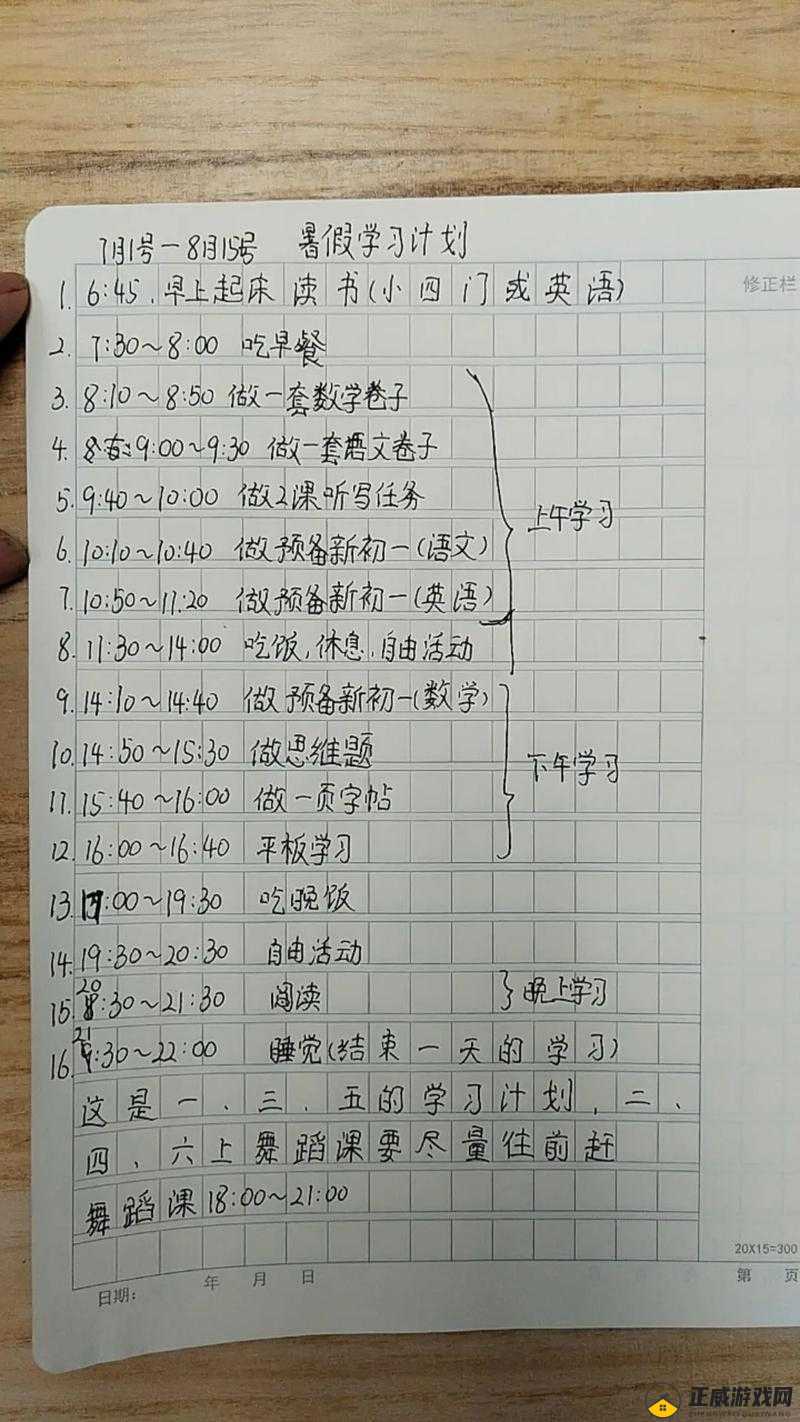 7月1号-8月15号 暑假学习计划
修正栏
1. 6:45.早上起床读书(小四门或英语)
2. 7:30~8:00 吃早餐
3. 8:10~8:50 做一套数学卷子
4. 9:00~9:30 做一套语文卷子
5. 9:40~10:00 做2课听写任务
上午学习
6. 10:10~10:40 做预备新初一(语文)
7. 10:50~11:20 做预备新初一(英语)
8. 11:30~14:00 吃饭,休息,自由活动
9. 14:10~14:40 做预备新初一(数学)
10. 14:50~15:30 做思维题
下午学习
11. 15:40~16:00 做一页字帖
12. 16:00~16:40 平板学习
13. :00~19:30 吃晚饭
14. 19:30~20:30 自由活动
15. 20:30~21:30 阅读 晚上学习
16. 21:30~22:00 睡觉(结束一天的学习)
这是一、三、五的学习计划,二、
四、六上舞蹈课要尽量往前赶
舞蹈课18:00~21:00
20X15=300
日期: 年 月 日 第 页
正威游戏网